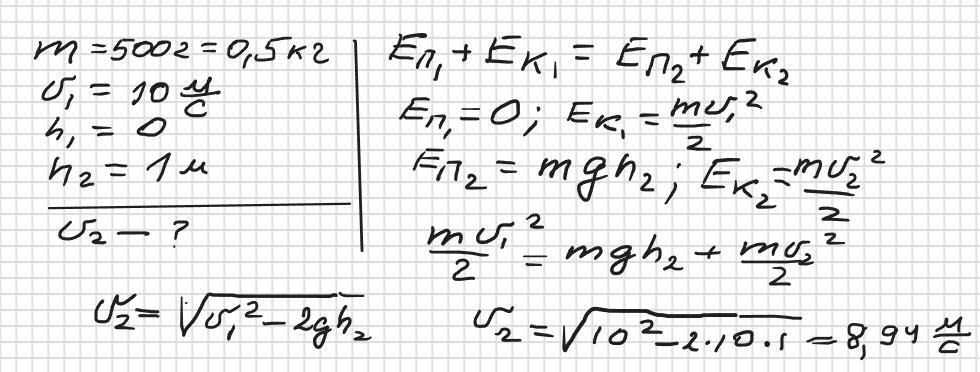 m = 500г = 0,5кг
υ₁ = 10 м/с
h₁ = 0
h₂ = 1 м
υ₂ — ?
Eп₁ + Eк₁ = Eп₂ + Eк₂
Eп₁ = 0; Eк₁ = mυ₁²/2
Eп₂ = mgh₂; Eк₂ = mυ₂²/2
mυ₁²/2 = mgh₂ + mυ₂²/2
υ₂ = √(υ₁² − 2gh₂)
υ₂ = √(10² − 2·10·1) = 8,94 м/с